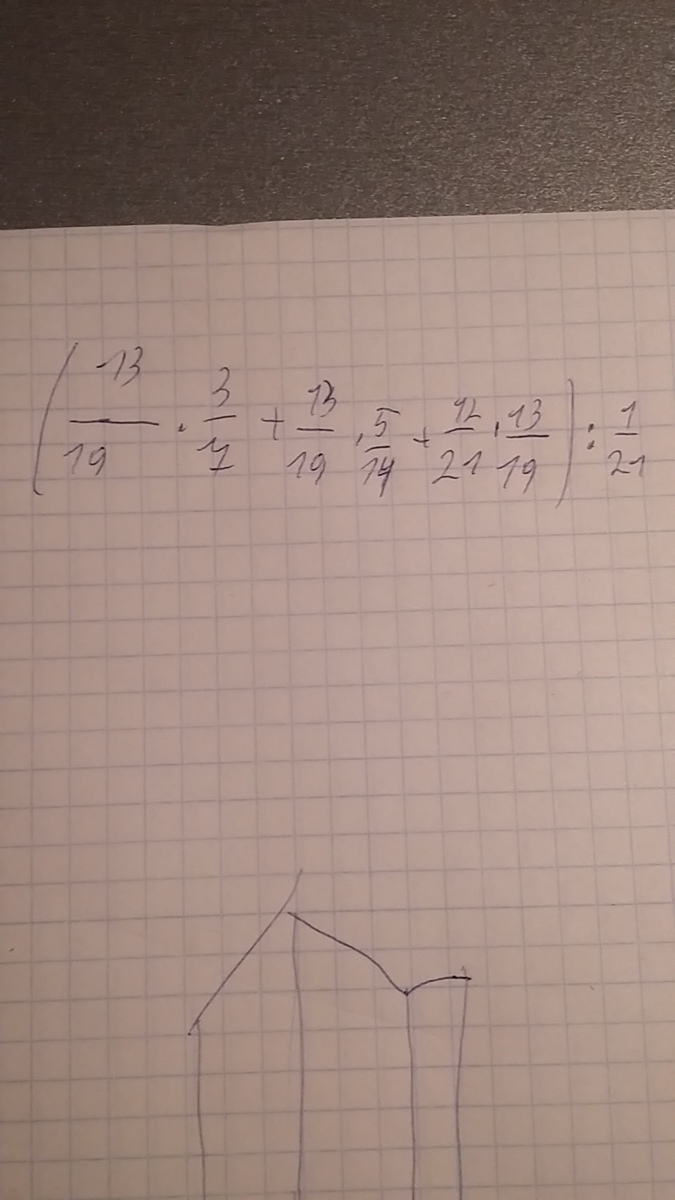 (13/19 · 3/7 + 13/19 · 5/14 + 12/21 · 13/19) : 1/21